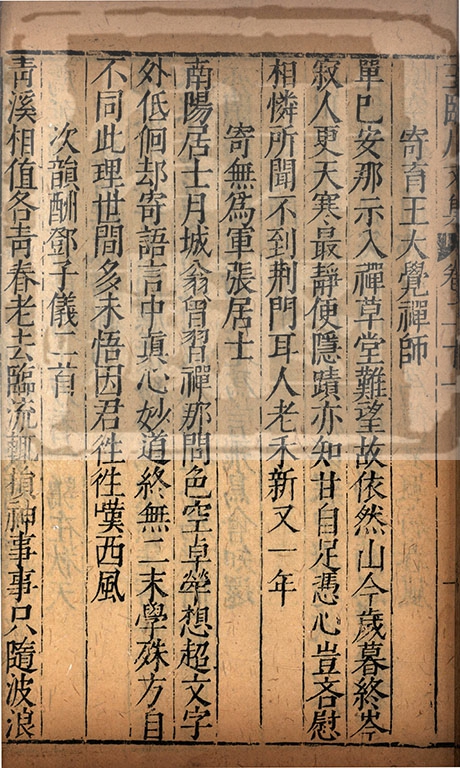 臨川文集卷二十
寄育王大覺禪師
單已安那示入禪草堂難望故依然山今歲暮終岑
寂人更天寒最靜便隱蹟亦知甘自足憑心豈吝慰
相憐所聞不到荆門耳人老禾新又一年
寄無爲軍張居士
南陽居士月城翁曾習禪那問色空卓犖想超文字
外低佪却寄語言中眞心妙道終無二末學殊方自
不同此理世間多未悟因君徃徃嘆西風
次韻酬鄧子儀二首
靑溪相值各靑春老去臨流輒損神事事只隨波浪